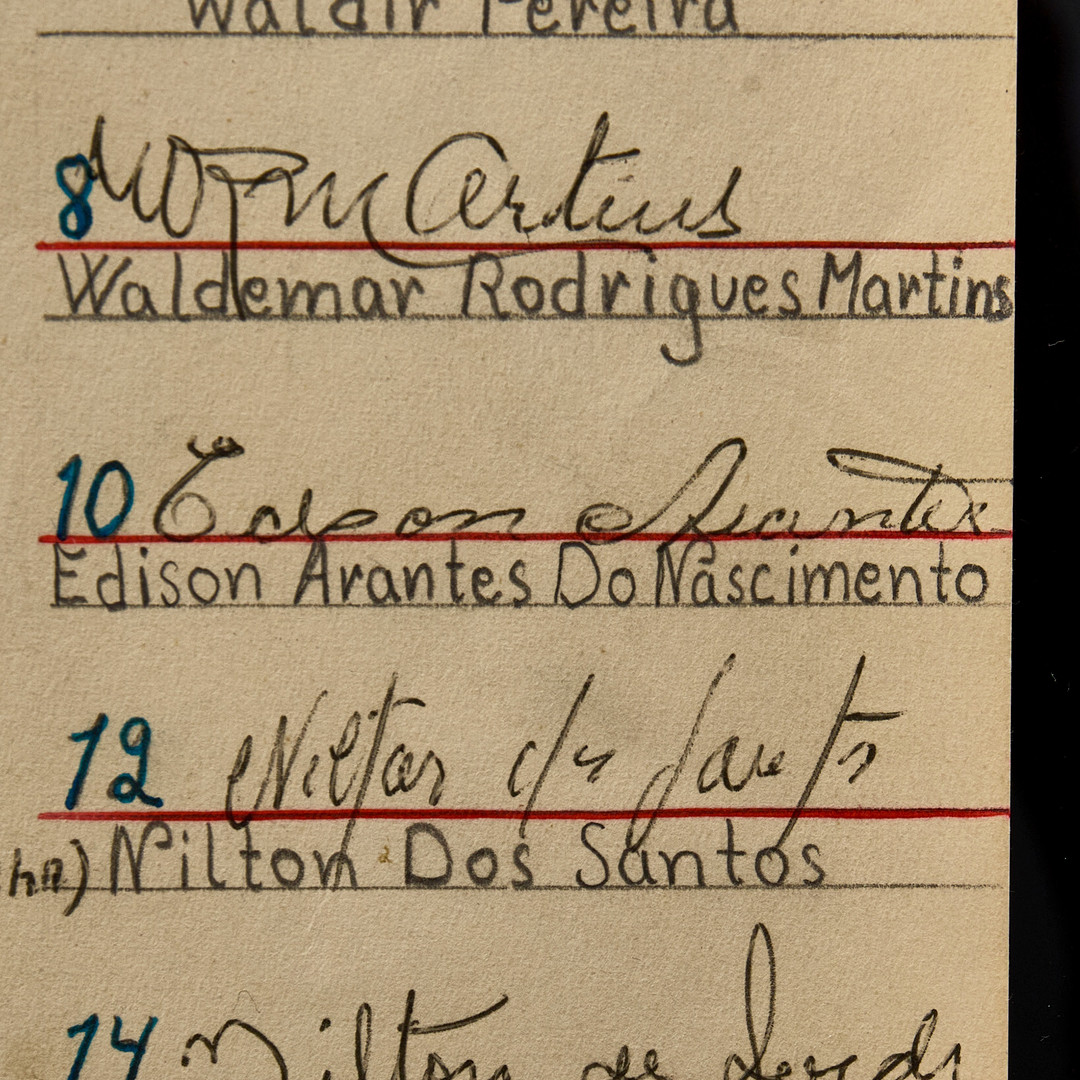 Waldir Pereira
8 W R M Martins
Waldemar Rodrigues Martins
10 Edson Arantes
Edison Arantes Do Nascimento
12 Nilton dos Santos
Nilton Dos Santos
14 Nilton de